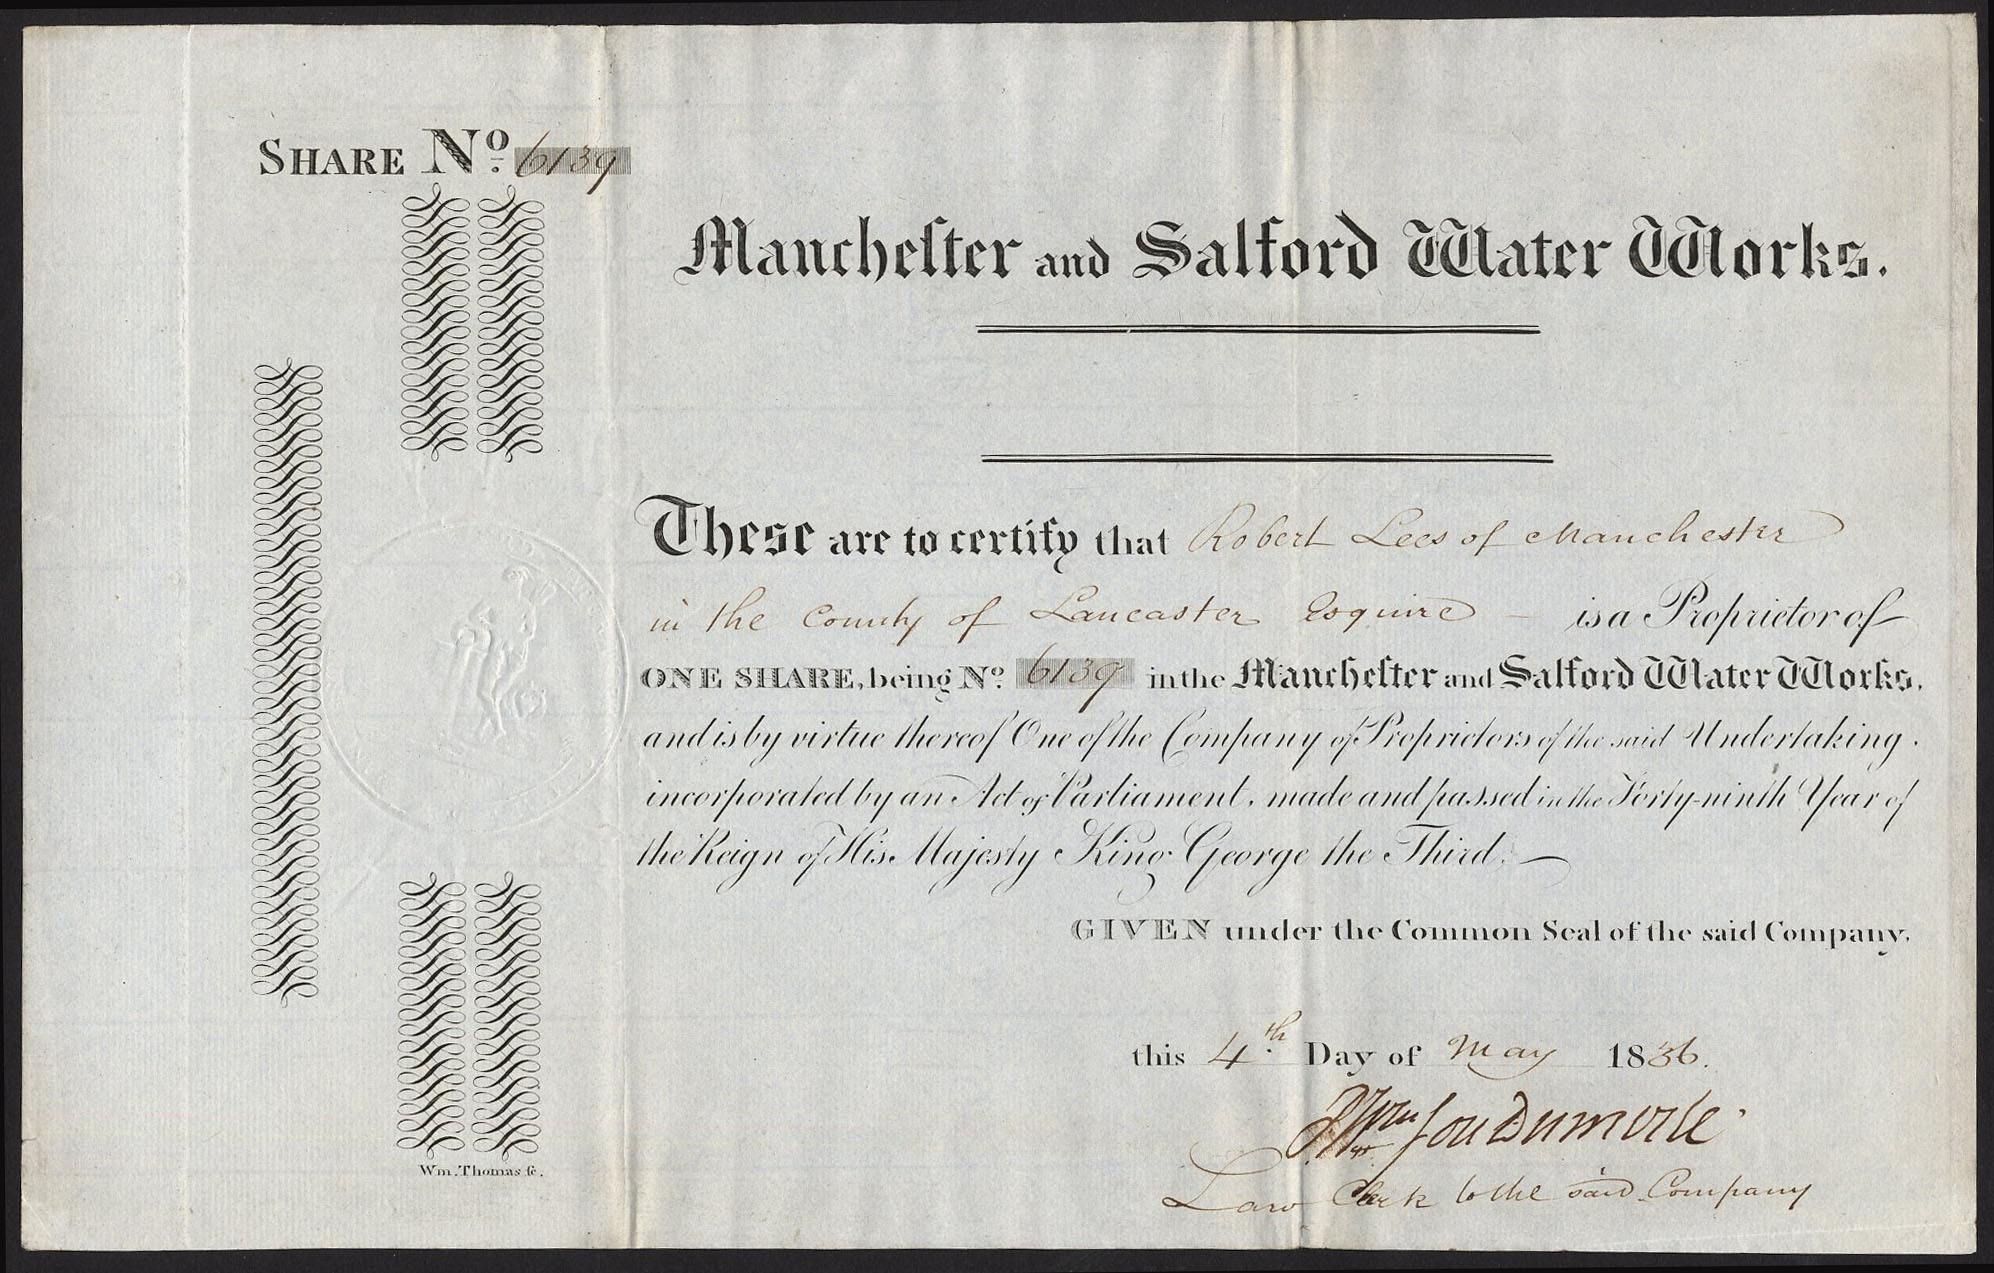 SHARE No. 6139
Mancheſter and Salford Water Works.
These are to certify that Robert Lees of Manchester
in the County of Lancaster Esquire — is a Proprietor of
ONE SHARE, being No. 6139 in the Mancheſter and Salford Water Works,
and is by virtue thereof One of the Company of Proprietors of the said Undertaking.
incorporated by an Act of Parliament, made and passed in the Forty-ninth Year of
the Reign of His Majesty King George the Third. —
GIVEN under the Common Seal of the said Company,
this 4th. Day of May 1836.
Wm
Law Clerk to the said Company
Wm. Thomas ſc.